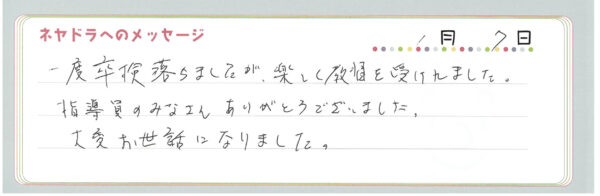 ネヤドラへのメッセージ
1月 7日
一度卒検落ちましたが、楽しく教習を受けれました。
指導員のみなさんありがとうございました。
大変お世話になりました。